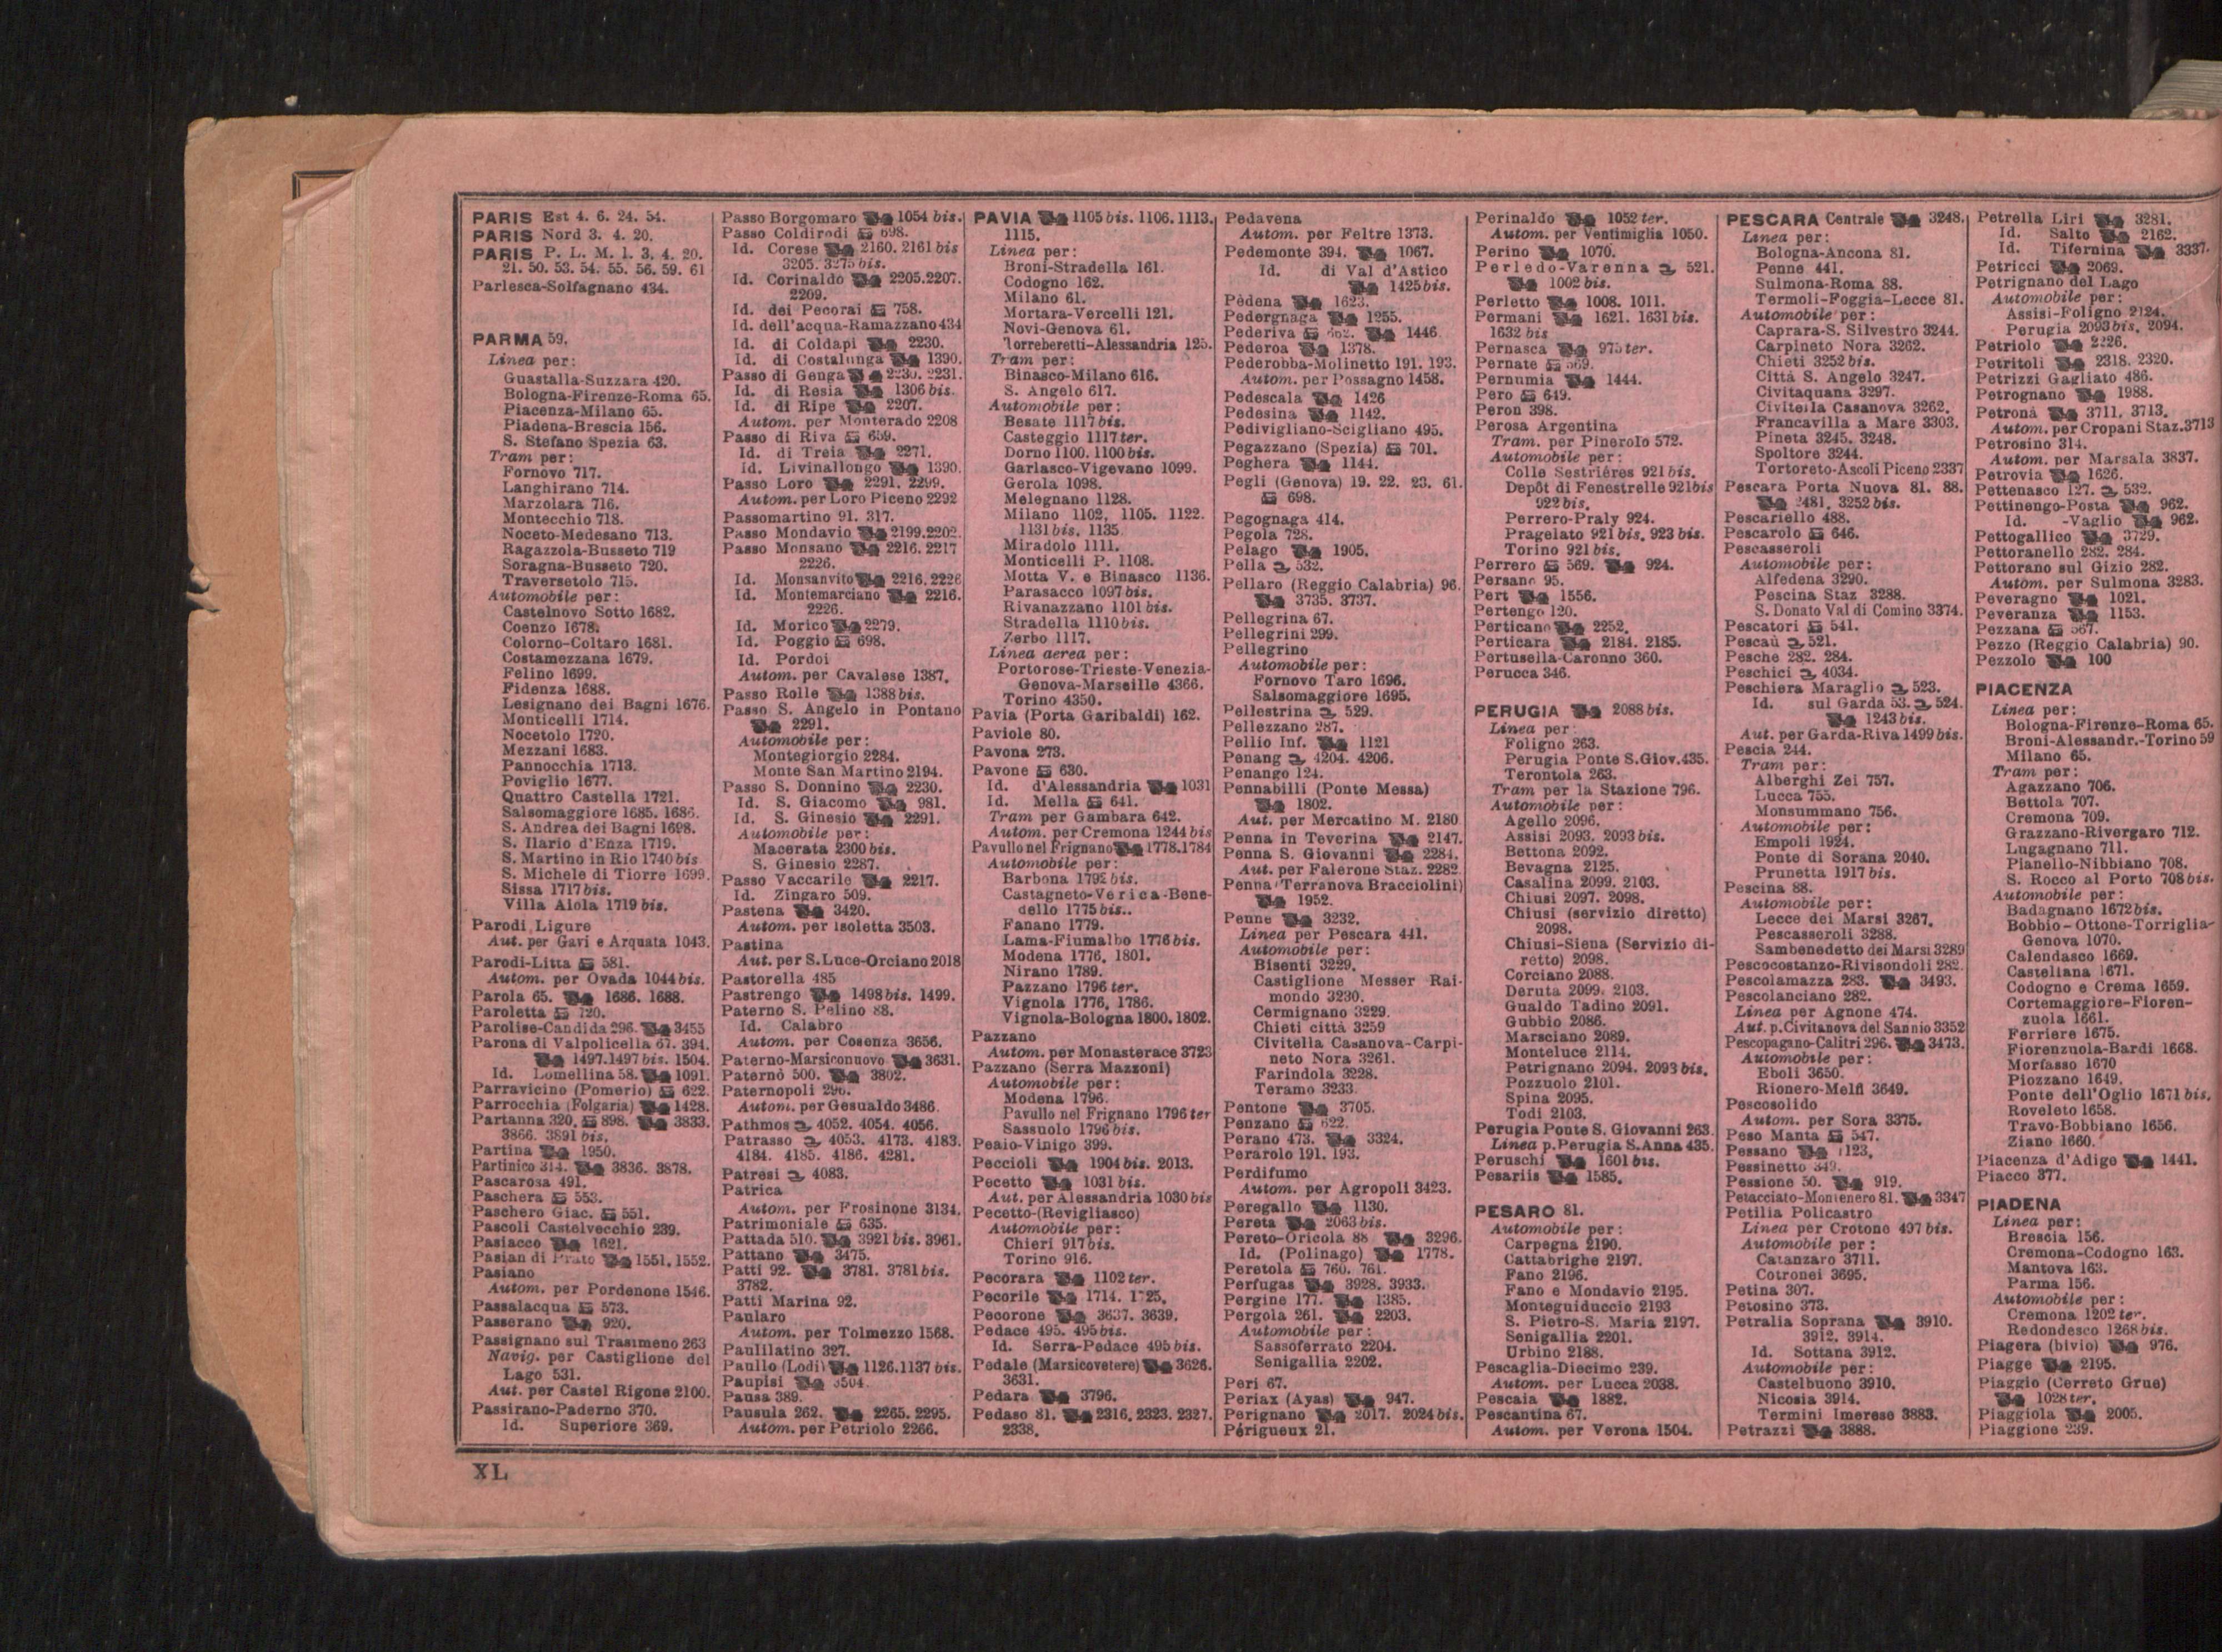 PARIS Est 4. 6. 24. 54.
PARIS Nord 3. 4. 20.
PARIS P. L. M. 1. 3. 4. 20.
21. 50. 53. 54. 55. 56. 59. 61
Parlesca-Solfagnano 434.
PARMA 59.
Linea per:
Guastalla-Suzzara 420.
Bologna-Firenze-Roma 65.
Piacenza-Milano 65.
Piadena-Brescia 156.
S. Stefano Spezia 63.
Tram per:
Fornovo 717.
Langhirano 714.
Marzolara 716.
Montecchio 718.
Noceto-Medesano 713.
Ragazzola-Busseto 719
Soragna-Busseto 720.
Traversetolo 715.
Automobile per:
Castelnovo Sotto 1682.
Coenzo 1678.
Colorno-Coltaro 1681.
Costamezzana 1679.
Felino 1699.
Fidenza 1688.
Lesignano dei Bagni 1676.
Monticelli 1714.
Nocetolo 1720.
Mezzani 1683.
Pannocchia 1713.
Poviglio 1677.
Quattro Castella 1721.
Salsomaggiore 1685. 1686.
S. Andrea dei Bagni 1698.
S. Ilario d'Enza 1719.
S. Martino in Rio 1740 bis
S. Michele di Tiorre 1699.
Sissa 1717 bis.
Villa Aiola 1719 bis.
Parodi Ligure
Aut. per Gavi e Arquata 1043.
Parodi-Litta 581.
Autom. per Ovada 1044 bis.
Parola 65. 1686. 1688.
Paroletta 720.
Parolise-Candida 296. 3455
Parona di Valpolicella 67. 394.
1497. 1497 bis. 1504.
Id. Lomellina 58. 1091.
Parravicino (Pomerio) 622.
Parrocchia (Folgaria) 1428.
Partanna 320. 898. 3833.
3866. 3891 bis.
Partina 1950.
Partinico 314. 3836. 3878.
Pascarosa 491.
Paschera 553.
Paschero Giac. 551.
Pascoli Castelvecchio 239.
Pasiacco 1621.
Pasian di Prato 1551. 1552.
Pasiano
Autom. per Pordenone 1546.
Passalacqua 573.
Passerano 920.
Passignano sul Trasimeno 263
Navig. per Castiglione del
Lago 531.
Aut. per Castel Rigone 2100.
Passirano-Paderno 370.
Id. Superiore 369.
Passo Borgomaro 1054 bis.
Passo Coldirodi 698.
Id. Corese 2160. 2161 bis
3205. 3275 bis.
Id. Corinaldo 2205. 2207.
2209.
Id. dei Pecorai 758.
Id. dell'acqua-Ramazzano 434
Id. di Coldapi 2230.
Id. di Costalunga 1390.
Passo di Genga 2230. 2231.
Id. di Resia 1306 bis.
Id. di Ripe 2207.
Autom. per Monterado 2208
Passo di Riva 659.
Id. di Treia 2271.
Id. Livinallongo 1390.
Passo Loro 2291. 2299.
Autom. per Loro Piceno 2292
Passomartino 91. 317.
Passo Mondavio 2199. 2202.
Passo Monsano 2216. 2217
2226.
Id. Monsanvito 2216. 2226
Id. Montemarciano 2216.
2226.
Id. Morico 2279.
Id. Poggio 698.
Id. Pordoi
Autom. per Cavalese 1387.
Passo Rolle 1388 bis.
Passo S. Angelo in Pontano
2291.
Automobile per:
Montegiorgio 2284.
Monte San Martino 2194.
Passo S. Donnino 2230.
Id. S. Giacomo 981.
Id. S. Ginesio 2291.
Automobile per:
Macerata 2300 bis.
S. Ginesio 2287.
Passo Vaccarile 2217.
Id. Zingaro 509.
Pastena 3420.
Autom. per Isoletta 3503.
Pastina
Aut. per S. Luce-Orciano 2018
Pastorella 485
Pastrengo 1498 bis. 1499.
Paterno S. Pelino 88.
Id. Calabro
Autom. per Cosenza 3656.
Paterno-Marsiconuovo 3631.
Paternò 500. 3802.
Paternopoli 296.
Autom. per Gesualdo 3486.
Pathmos 4052. 4054. 4056.
Patrasso 4053. 4173. 4183.
4184. 4185. 4186. 4281.
Patresi 4083.
Patrica
Autom. per Frosinone 3134.
Patrimoniale 635.
Pattada 510. 3921 bis. 3961.
Pattano 3475.
Patti 92. 3781. 3781 bis.
3782.
Patti Marina 92.
Paularo
Autom. per Tolmezzo 1568.
Paulilatino 327.
Paullo (Lodi) 1126. 1137 bis.
Paupisi 3504.
Pausa 389.
Pausula 262. 2265. 2295.
Autom. per Petriolo 2266.
PAVIA 1105 bis. 1106. 1113.
1115.
Linea per:
Broni-Stradella 161.
Codogno 162.
Milano 61.
Mortara-Vercelli 121.
Novi-Genova 61.
Torreberetti-Alessandria 125.
Tram per:
Binasco-Milano 616.
S. Angelo 617.
Automobile per:
Besate 1117 bis.
Casteggio 1117 ter.
Dorno 1100. 1100 bis.
Garlasco-Vigevano 1099.
Gerola 1098.
Melegnano 1128.
Milano 1102. 1105. 1122.
1131 bis. 1135
Miradolo 1111.
Monticelli P. 1108.
Motta V. e Binasco 1136.
Parasacco 1097 bis.
Rivanazzano 1101 bis.
Stradella 1110 bis.
Zerbo 1117.
Linea aerea per:
Portorose-Trieste-Venezia-
Genova-Marseille 4366.
Torino 4350.
Pavia (Porta Garibaldi) 162.
Paviole 80.
Pavona 273.
Pavone 630.
Id. d'Alessandria 1031
Id. Mella 641.
Tram per Gambara 642.
Autom. per Cremona 1244 bis
Pavullo nel Frignano 1778. 1784
Automobile per:
Barbona 1792 bis.
Castagneto-Verica-Bene-
dello 1775 bis..
Fanano 1779.
Lama-Fiumalbo 1776 bis.
Modena 1776. 1801.
Nirano 1789.
Pazzano 1796 ter.
Vignola 1776. 1786.
Vignola-Bologna 1800. 1802.
Pazzano
Autom. per Monasterace 3723
Pazzano (Serra Mazzoni)
Automobile per:
Modena 1796.
Pavullo nel Frignano 1796 ter
Sassuolo 1796 bis.
Peaio-Vinigo 399.
Peccioli 1904 bis. 2013.
Pecetto 1031 bis.
Aut. per Alessandria 1030 bis
Pecetto-(Revigliasco)
Automobile per:
Chieri 917 bis.
Torino 916.
Pecorara 1102 ter.
Pecorile 1714. 1725.
Pecorone 3637. 3639.
Pedace 495. 495 bis.
Id. Serra-Pedace 495 bis.
Pedale (Marsicovetere) 3626.
3631.
Pedara 3796.
Pedaso 81. 2316. 2323. 2327.
2338.
Pedavena
Autom. per Feltre 1373.
Pedemonte 394. 1067.
Id. di Val d'Astico
1425 bis.
Pèdena 1623.
Pedergnaga 1255.
Pederiva 662. 1446
Pederoa 1378.
Pederobba-Molinetto 191. 193.
Autom. per Possagno 1458.
Pedescala 1426
Pedesina 1142.
Pedivigliano-Scigliano 495.
Pegazzano (Spezia) 701.
Peghera 1144.
Pegli (Genova) 19. 22. 23. 61.
698.
Pegognaga 414.
Pegola 728.
Pelago 1905.
Pella 532.
Pellaro (Reggio Calabria) 96.
3735. 3737.
Pellegrina 67.
Pellegrini 299.
Pellegrino
Automobile per:
Fornovo Taro 1696.
Salsomaggiore 1695.
Pellestrina 529.
Pellezzano 287.
Pellio Inf. 1121
Penang 4204. 4206.
Penango 124.
Pennabilli (Ponte Messa)
1802.
Aut. per Mercatino M. 2180
Penna in Teverina 2147.
Penna S. Giovanni 2284.
Aut. per Falerone Staz. 2282
Penna (Terranova Bracciolini)
1952.
Penne 3232.
Linea per Pescara 441.
Automobile per:
Bisenti 3229.
Castiglione Messer Rai-
mondo 3230.
Cermignano 3229.
Chieti città 3259
Civitella Casanova-Carpi-
neto Nora 3261.
Farindola 3228.
Teramo 3233.
Pentone 3705.
Penzano 622.
Perano 473. 3324.
Perarolo 191. 193.
Perdifumo
Autom. per Agropoli 3423.
Peregallo 1130.
Pereta 2063 bis.
Pereto-Oricola 88 3296.
Id. (Polinago) 1778.
Peretola 760. 761.
Perfugas 3928. 3933.
Pergine 177. 1385.
Pergola 261. 2203.
Automobile per:
Sassoferrato 2204.
Senigallia 2202.
Peri 67.
Periax (Ayas) 947.
Perignano 2017. 2024 bis.
Périgueux 21.
Perinaldo 1052 ter.
Autom. per Ventimiglia 1050.
Perino 1070.
Perledo-Varenna 521.
1002 bis.
Perletto 1008. 1011.
Permani 1621. 1631 bis.
1632 bis
Pernasca 975 ter.
Pernate 569.
Pernumia 1444.
Pero 649.
Peron 398.
Perosa Argentina
Tram. per Pinerolo 572.
Automobile per:
Colle Sestriéres 921 bis.
Depôt di Fenestrelle 921 bis
922 bis.
Perrero-Praly 924.
Pragelato 921 bis. 923 bis.
Torino 921 bis.
Perrero 569. 924.
Persano 95.
Pert 1556.
Pertengo 120.
Perticano 2252.
Perticara 2184. 2185.
Pertusella-Caronno 360.
Perucca 346.
PERUGIA 2088 bis.
Linea per
Foligno 263.
Perugia Ponte S. Giov. 435.
Terontola 263.
Tram per la Stazione 796.
Automobile per:
Agello 2096.
Assisi 2093. 2093 bis.
Bettona 2092.
Bevagna 2125.
Casalina 2099. 2103.
Chiusi 2097. 2098.
Chiusi (servizio diretto)
2098.
Chiusi-Siena (Servizio di-
retto) 2098.
Corciano 2088.
Deruta 2099. 2103.
Gualdo Tadino 2091.
Gubbio 2086.
Marsciano 2089.
Monteluce 2114.
Petrignano 2094. 2093 bis.
Pozzuolo 2101.
Spina 2095.
Todi 2103.
Perugia Ponte S. Giovanni 263.
Linea p. Perugia S. Anna 435.
Peruschi 1601 bis.
Pesariis 1585.
PESARO 81.
Automobile per:
Carpegna 2190.
Cattabrighe 2197.
Fano 2196.
Fano e Mondavio 2195.
Monteguiduccio 2193
S. Pietro-S. Maria 2197.
Senigallia 2201.
Urbino 2188.
Pescaglia-Diecimo 239.
Autom. per Lucca 2038.
Pescaia 1882.
Pescantina 67.
Autom. per Verona 1504.
PESCARA Centrale 3248.
Linea per:
Bologna-Ancona 81.
Penne 441.
Sulmona-Roma 88.
Termoli-Foggia-Lecce 81.
Automobile per:
Caprara-S. Silvestro 3244.
Carpineto Nora 3262.
Chieti 3252 bis.
Città S. Angelo 3247.
Civitaquana 3297.
Civitella Casanova 3262.
Francavilla a Mare 3303.
Pineta 3245. 3248.
Spoltore 3244.
Tortoreto-Ascoli Piceno 2337
Pescara Porta Nuova 81. 88.
2481. 3252 bis.
Pescariello 488.
Pescarolo 646.
Pescasseroli
Automobile per:
Alfedena 3290.
Pescina Staz 3288.
S. Donato Val di Comino 3374.
Pescatori 541.
Pescaù 521.
Pesche 282. 284.
Peschici 4034.
Peschiera Maraglio 523.
Id. sul Garda 53. 524.
1243 bis.
Aut. per Garda-Riva 1499 bis.
Pescia 244.
Tram per:
Alberghi Zei 757.
Lucca 755.
Monsummano 756.
Automobile per:
Empoli 1924.
Ponte di Sorana 2040.
Prunetta 1917 bis.
Pescina 88.
Automobile per:
Lecce dei Marsi 3267.
Pescasseroli 3288.
Sambenedetto dei Marsi 3289
Pescocostanzo-Rivisondoli 282.
Pescolamazza 283. 3493.
Pescolanciano 282.
Linea per Agnone 474.
Aut. p. Civitanova del Sannio 3352
Pescopagano-Calitri 296. 3473.
Automobile per:
Eboli 3650.
Rionero-Melfi 3649.
Pescosolido
Autom. per Sora 3375.
Peso Manta 547.
Pessano 1123.
Pessinetto 349.
Pessione 50. 919.
Petacciato-Montenero 81. 3347
Petilia Policastro
Linea per Crotone 497 bis.
Automobile per:
Catanzaro 3711.
Cotronei 3695.
Petina 307.
Petosino 373.
Petralia Soprana 3910.
3912. 3914.
Id. Sottana 3912.
Automobile per:
Castelbuono 3910.
Nicosia 3914.
Termini Imerese 3883.
Petrazzi 3888.
Petrella Liri 3281.
Id. Salto 2162.
Id. Tifernina 3337.
Petricci 2069.
Petrignano del Lago
Automobile per:
Assisi-Foligno 2124.
Perugia 2093 bis. 2094.
Petriolo 2226.
Petritoli 2318. 2320.
Petrizzi Gagliato 486.
Petrognano 1988.
Petronà 3711. 3713.
Autom. per Cropani Staz. 3713
Petrosino 314.
Autom. per Marsala 3837.
Petrovia 1626.
Pettenasco 127. 532.
Pettinengo-Posta 962.
Id. -Vaglio 962.
Pettogallico 3729.
Pettoranello 282. 284.
Pettorano sul Gizio 282.
Autom. per Sulmona 3283.
Peveragno 1021.
Peveranza 1153.
Pezzana 567.
Pezzo (Reggio Calabria) 90.
Pezzolo 100
PIACENZA
Linea per:
Bologna-Firenze-Roma 65.
Broni-Alessandr.-Torino 59
Milano 65.
Tram per:
Agazzano 706.
Bettola 707.
Cremona 709.
Grazzano-Rivergaro 712.
Lugagnano 711.
Pianello-Nibbiano 708.
S. Rocco al Porto 708 bis.
Automobile per:
Badagnano 1672 bis.
Bobbio-Ottone-Torriglia-
Genova 1070.
Calendasco 1669.
Casteliana 1671.
Codogno e Crema 1659.
Cortemaggiore-Fioren-
zuola 1661.
Ferriere 1675.
Fiorenzuola-Bardi 1668.
Morfasso 1670
Piozzano 1649.
Ponte dell'Oglio 1671 bis.
Roveleto 1658.
Travo-Bobbiano 1656.
Ziano 1660.
Piacenza d'Adige 1441.
Piacco 377.
PIADENA
Linea per:
Brescia 156.
Cremona-Codogno 163.
Mantova 163.
Parma 156.
Automobile per:
Cremona 1202 ter.
Redondesco 1268 bis.
Piagera (bivio) 976.
Piagge 2195.
Piaggio (Cerreto Grue)
1028 ter.
Piaggiola 2005.
Piaggione 239.
XL